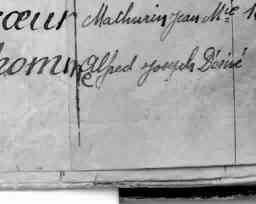 cœur Mathurin Jean Mie
homme Alfred Joseph Désiré